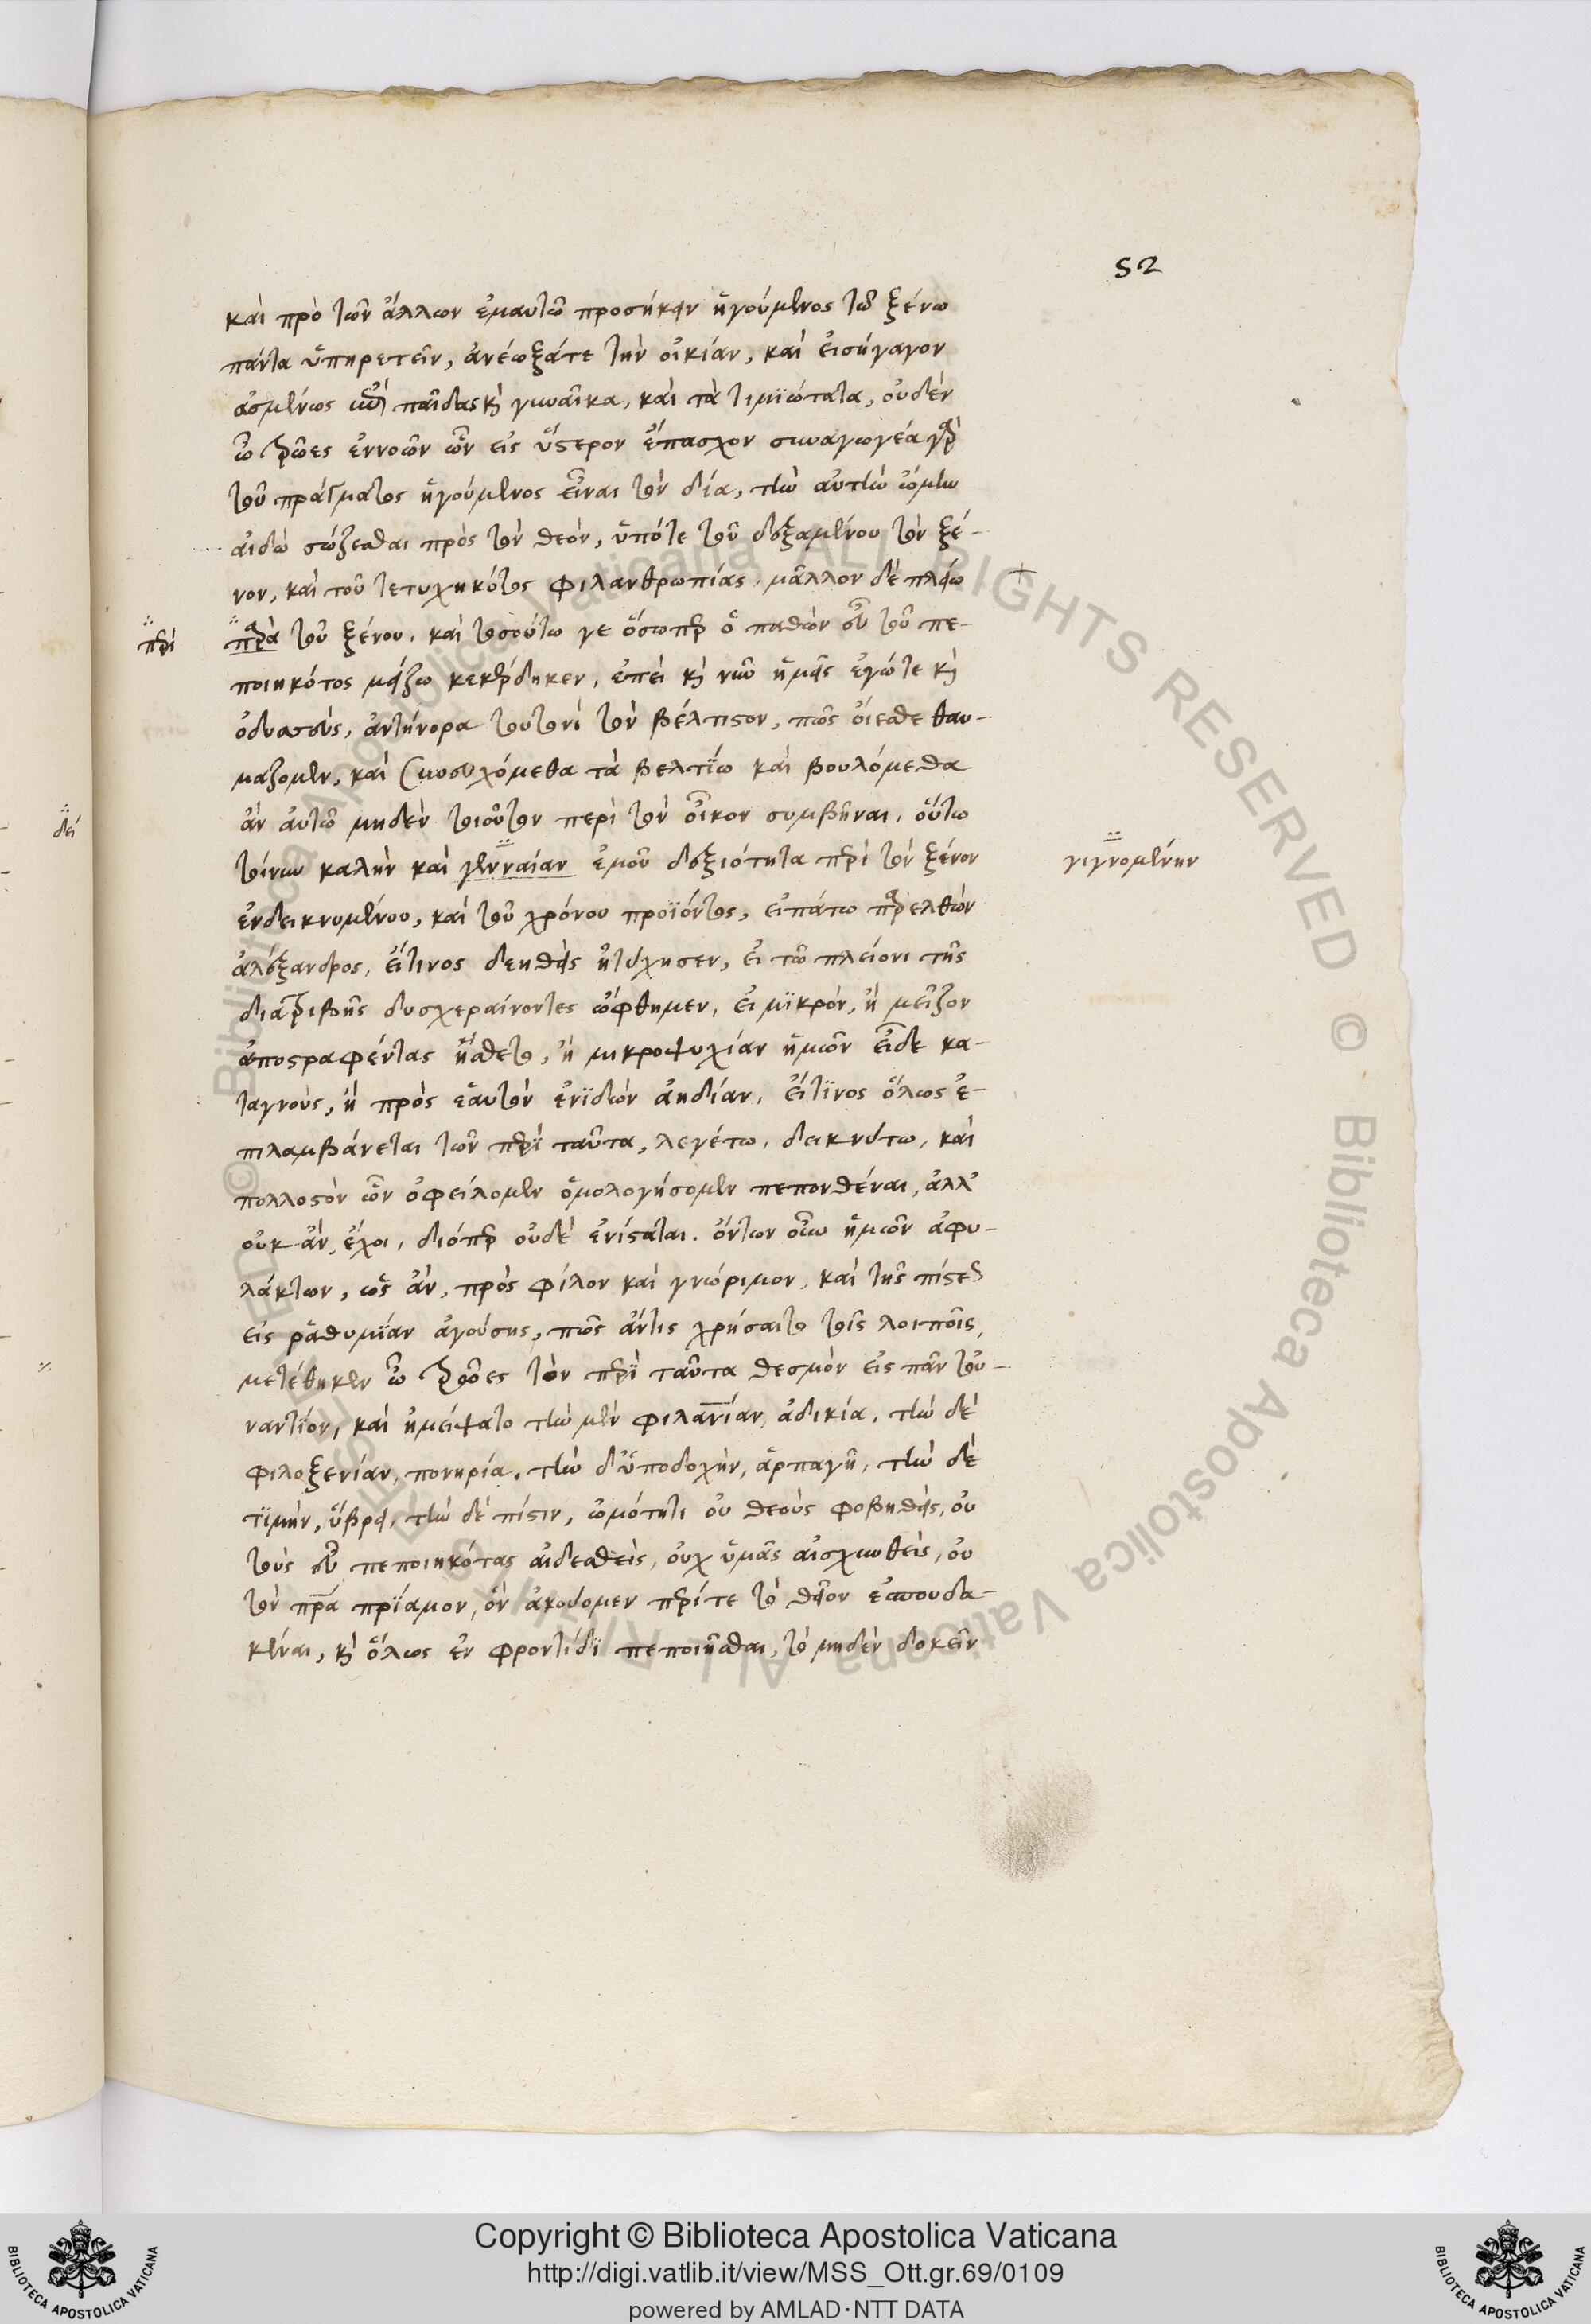 52
καὶ πρὸ τῶν ἄλλων ἐμαυτῶ προσήκειν ἡγούμενος τῶ ξένω
πάντα ὑπηρετεῖν, ἀνέωξάτε τὴν οἰκίαν, καὶ εἰσήγαγον
ἀσμένως παῖδας καὶ γυναῖκα, καὶ τὰ τιμϊώτατα, οὐδὲν
ὦ Τρῶες ἐννοῶν ὧν εἰς ὕστερον ἔπασχον συναγωγέα γὰρ
τοῦ πράγματος ἡγούμενος εἶναι τὸν δία, τὴν αὐτὴν ᾤμην
αἰδῶ σώζεσθαι πρὸς τὸν θεὸν, ὑπότε τοῦ δεξαμένου τὸν ξέ-
νον, καὶ τοῦ τετυχηκότος φιλανθρωπίας, μᾶλλον δὲ πλείω
περὶ
παρὰ τοῦ ξένου. καὶ τοσούτω γε ὅσωπερ ὁ παθὼν εὖ τοῦ πε-
ποιηκότος μείζω κεκέρδηκεν, ἐπεὶ καὶ νῦν ἡμεῖς ἐγώτε καὶ
ὀδυσσεὺς, ἀντήνορα τουτονὶ τὸν βέλτιστον, πῶς οἴεσθε θαυ-
μάζομεν, καὶ συνευχόμεθα τὰ βελτΐω καὶ βουλόμεθα
ἂν αὐτῶ μηδὲν τοιοῦτον περὶ τὸν οἶκον συμβῆναι, οὕτω
τοίνυν καλὴν καὶ γενναίαν ἐμοῦ δεξιότητα περὶ τὸν ξένον
γιγνομένην
ἐνδεικνυμένου, καὶ τοῦ χρόνου προϊόντος, εἰπάτω παρελθὼν
ἀλέξανδρος, εἴτινος δεηθεὶς ἠτύχησεν, εἰ τῶ πλείονι τῆς
διατριβῆς δυσχεραίνοντες ὤφθημεν, εἰ μϊκρὸν, ἢ μεῖζον
ἀποστραφέντας ἤσθετο, ἢ μικροψυχίαν ἡμῶν εἶδε κα-
ταγνοὺς, ἢ πρὸς ἑαυτὸν ἐνϊδὼν ἀηδίαν, εἴτϊνος ὅλως ἐ-
πιλαμβάνεται τῶν περὶ ταῦτα, λεγέτω, δεικνύτω, καὶ
πολλοστὸν ὧν ὀφείλομεν ὁμολογήσομεν πεπονθέναι, ἀλλ'
οὐκ ἂν ἔχοι, διόπερ οὐδὲ ἐνίσταται. ὄντων οὖν ἡμῶν ἀφυ-
λάκτων, ὡς ἂν, πρὸς φίλον καὶ γνώριμον, καὶ τῆς πίστεως
εἰς ῥᾳθυμΐαν ἀγούσης, πῶς ἄντις χρήσαιτο τοῖς λοιποῖς,
μετέθηκεν ὦ Τρῶες τὸν περὶ ταῦτα θεσμὸν εἰς πᾶν τοὐ-
ναντΐον, καὶ ἠμείψατο τὴν μὲν φιλανίαν, ἀδικία, τὴν δὲ
φιλοξενίαν, πονηρία, τὴν δ' ὑποδοχὴν, ἁρπαγῆ, τὴν δὲ
τϊμὴν, ὕβρει, τὴν δὲ πίστιν, ὠμότητι οὐ θεοὺς φοβηθεὶς, οὐ
τοὺς εὖ πεποιηκότας αἰδεσθεὶς, οὐχ ὑμᾶς αἰσχυνθεὶς, οὐ
τὸν πρα πρΐαμον, ὃν ἀκούομεν περίτε τὸ θεῖον ἐσπουδα-
κέναι, καὶ ὅλως ἐν φροντίδϊ πεποιῆσθαι, τὸ μηδὲν δοκεῖν
Copyright © Biblioteca Apostolica Vaticana
http://digi.vatlib.it/view/MSS_Ott.gr.69/0109
powered by AMLAD·NTT DATA